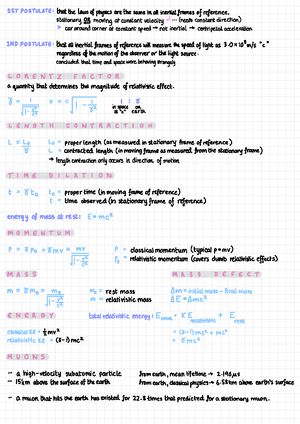 1ST POSTULATE: that the laws of physics are the same in all inertial frames of reference.
stationary OR moving at constant velocity (needs constant direction)
> car around corner at constant speed → not inertial → centripetal acceleration
2ND POSTULATE: that all inertial frames of reference will measure the speed of light as 3.0×10⁸ m/s "c"
regardless of the motion of the observer or the light source.
concluded that time and space were behaving strangely
LORENTZ FACTOR
a quantity that determines the magnitude of relativistic effect.
γ = 1/√(1 - v²/c²) v = c √(1 - 1/γ²) 1 : γ
in space at "v" on earth
LENGTH CONTRACTION
L = L₀/γ L₀ = proper length (as measured in stationary frame of reference)
L = contracted length (in moving frame as measured from the stationary frame)
→ length contraction only occurs in direction of motion
TIME DILATION
t = γt₀ t₀ = proper time (in moving frame of reference)
t = time observed (in stationary frame of reference)
energy of mass at rest: E=mc²
MOMENTUM
P = γp₀ = γmv = mv/√(1 - v²/c²) P = classical momentum (typical p=mv)
= relativistic momentum (covers dumb relativistic effects)
MASS MASS DEFECT
m = γm₀ = m₀/√(1 - v²/c²) m₀ = rest mass Δm = initial mass - final mass
m = relativistic mass ΔE = Δmc²
ENERGY total relativistic energy: E = KE relativistic + E rest
classical KE = ½mv² = (γ-1)mc² + mc²
relativistic KE = (γ-1)mc² = γmc²
MUONS
- a high-velocity subatomic particle from earth, mean lifetime → 2.196µs
- 15km above the surface of the earth from earth, classical physics → 6.58km above earth's surface
- a muon that hits the earth has existed for 22.8 times that predicted for a stationary muon.